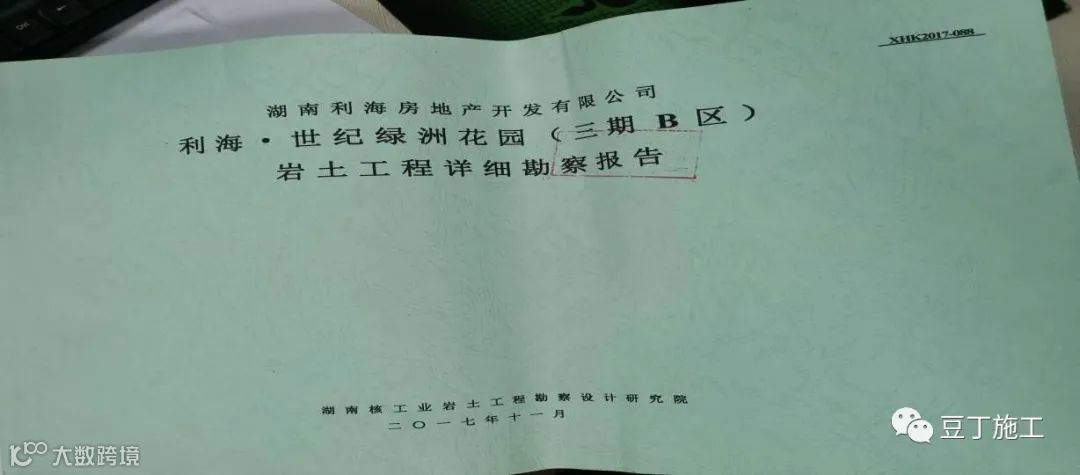 XHK2017-088
湖南利海房地产开发有限公司
利海·世纪绿洲花园（三期B区）
岩土工程详细勘察报告
湖南核工业岩土工程勘察设计研究院
二〇一七年十一月
豆丁施工
大数跨境